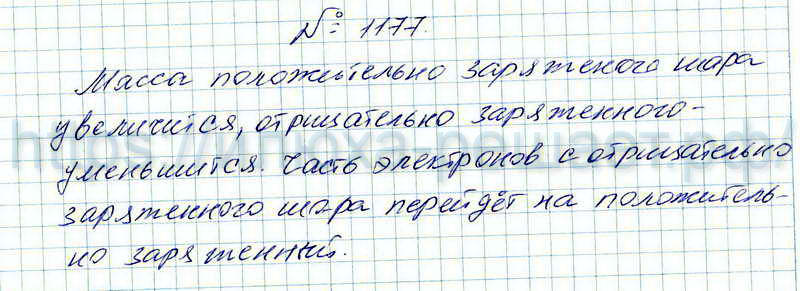 № 1177.
Масса положительно заряженого шара
увеличится, отрицательно заряженного-
уменьшится. Часть электронов с отрицательно
заряженного шара перейдёт на положитель-
но заряженный.